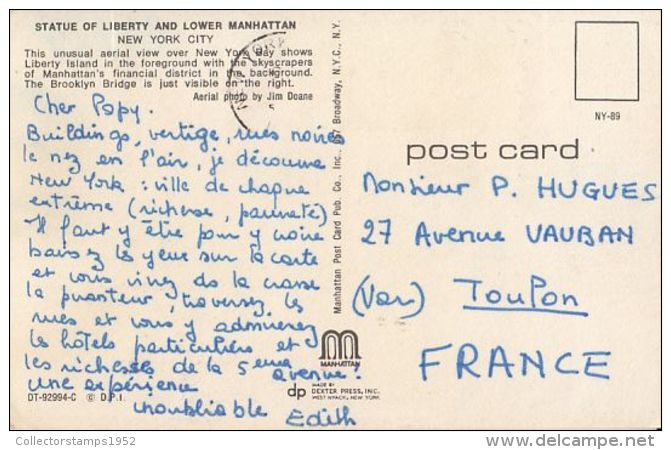 STATUE OF LIBERTY AND LOWER MANHATTAN
NEW YORK CITY
This unusual aerial view over New York Bay shows
Liberty Island in the foreground with the skyscrapers
of Manhattan's financial district in the background.
The Brooklyn Bridge is just visible on the right.
Aerial photo by Jim Doane
Cher Papy.
Buildings, vertige, rues noires
le nez en l'air, je découvre
New York : ville de chaque
extrême (richesse, pauvreté)
Il faut y être pour y croire
baissez les yeux sur la carte
et vous vivez ds la crasse
la puanteur, traversez les
rues et vous y admirerez
les hôtels particuliers et
les richesses de la 5 eme
avenue!
Une expérience
inoubliable
Edith
DT-92994-C © D.P.I.
Manhattan Post Card Pub. Co., Inc., Broadway, N.Y.C., N.Y.
MANHATTAN
dp MADE BY
DEXTER PRESS, INC.
WEST NYACK, NEW YORK
NY-89
post card
Monsieur P. HUGUES
27 Avenue VAUBAN
(Var) Toulon
FRANCE
Collectorstamps1952
delcampe.net